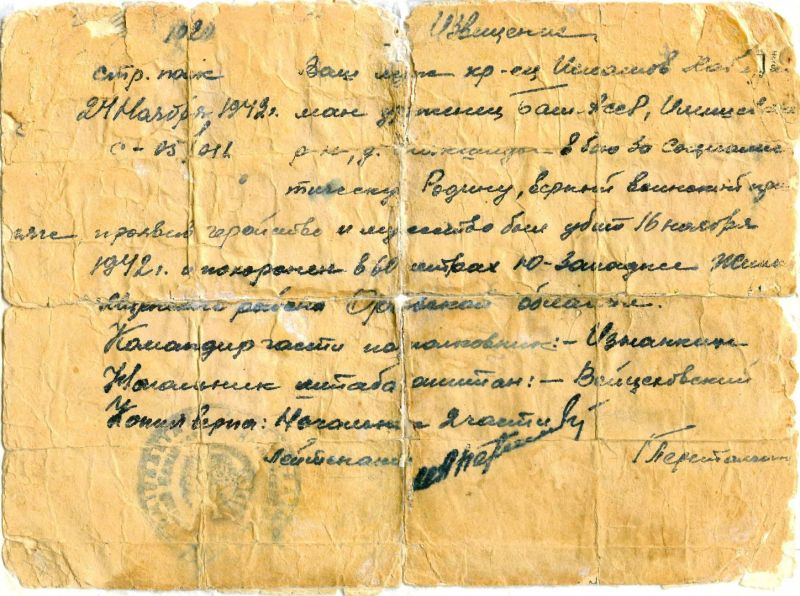 1920 Извещение
стр. полк Ваш муж кр-ец Исламов
24 Ноября 1942 г. ман уроженец Баш АССР, Илишев
р-н, д. в бою за социалис
тическую Родину, верный воинской при
сяге проявив геройство и мужество был убит 16 ноября
1942 г. и похоронен в 60 метрах ю-западнее
района Орловской области.
Командир части подполковник: - Изманкин
Начальник штаба капитан: - Войцеховский
Копия верна: Начальник 2 части
Лейтенант